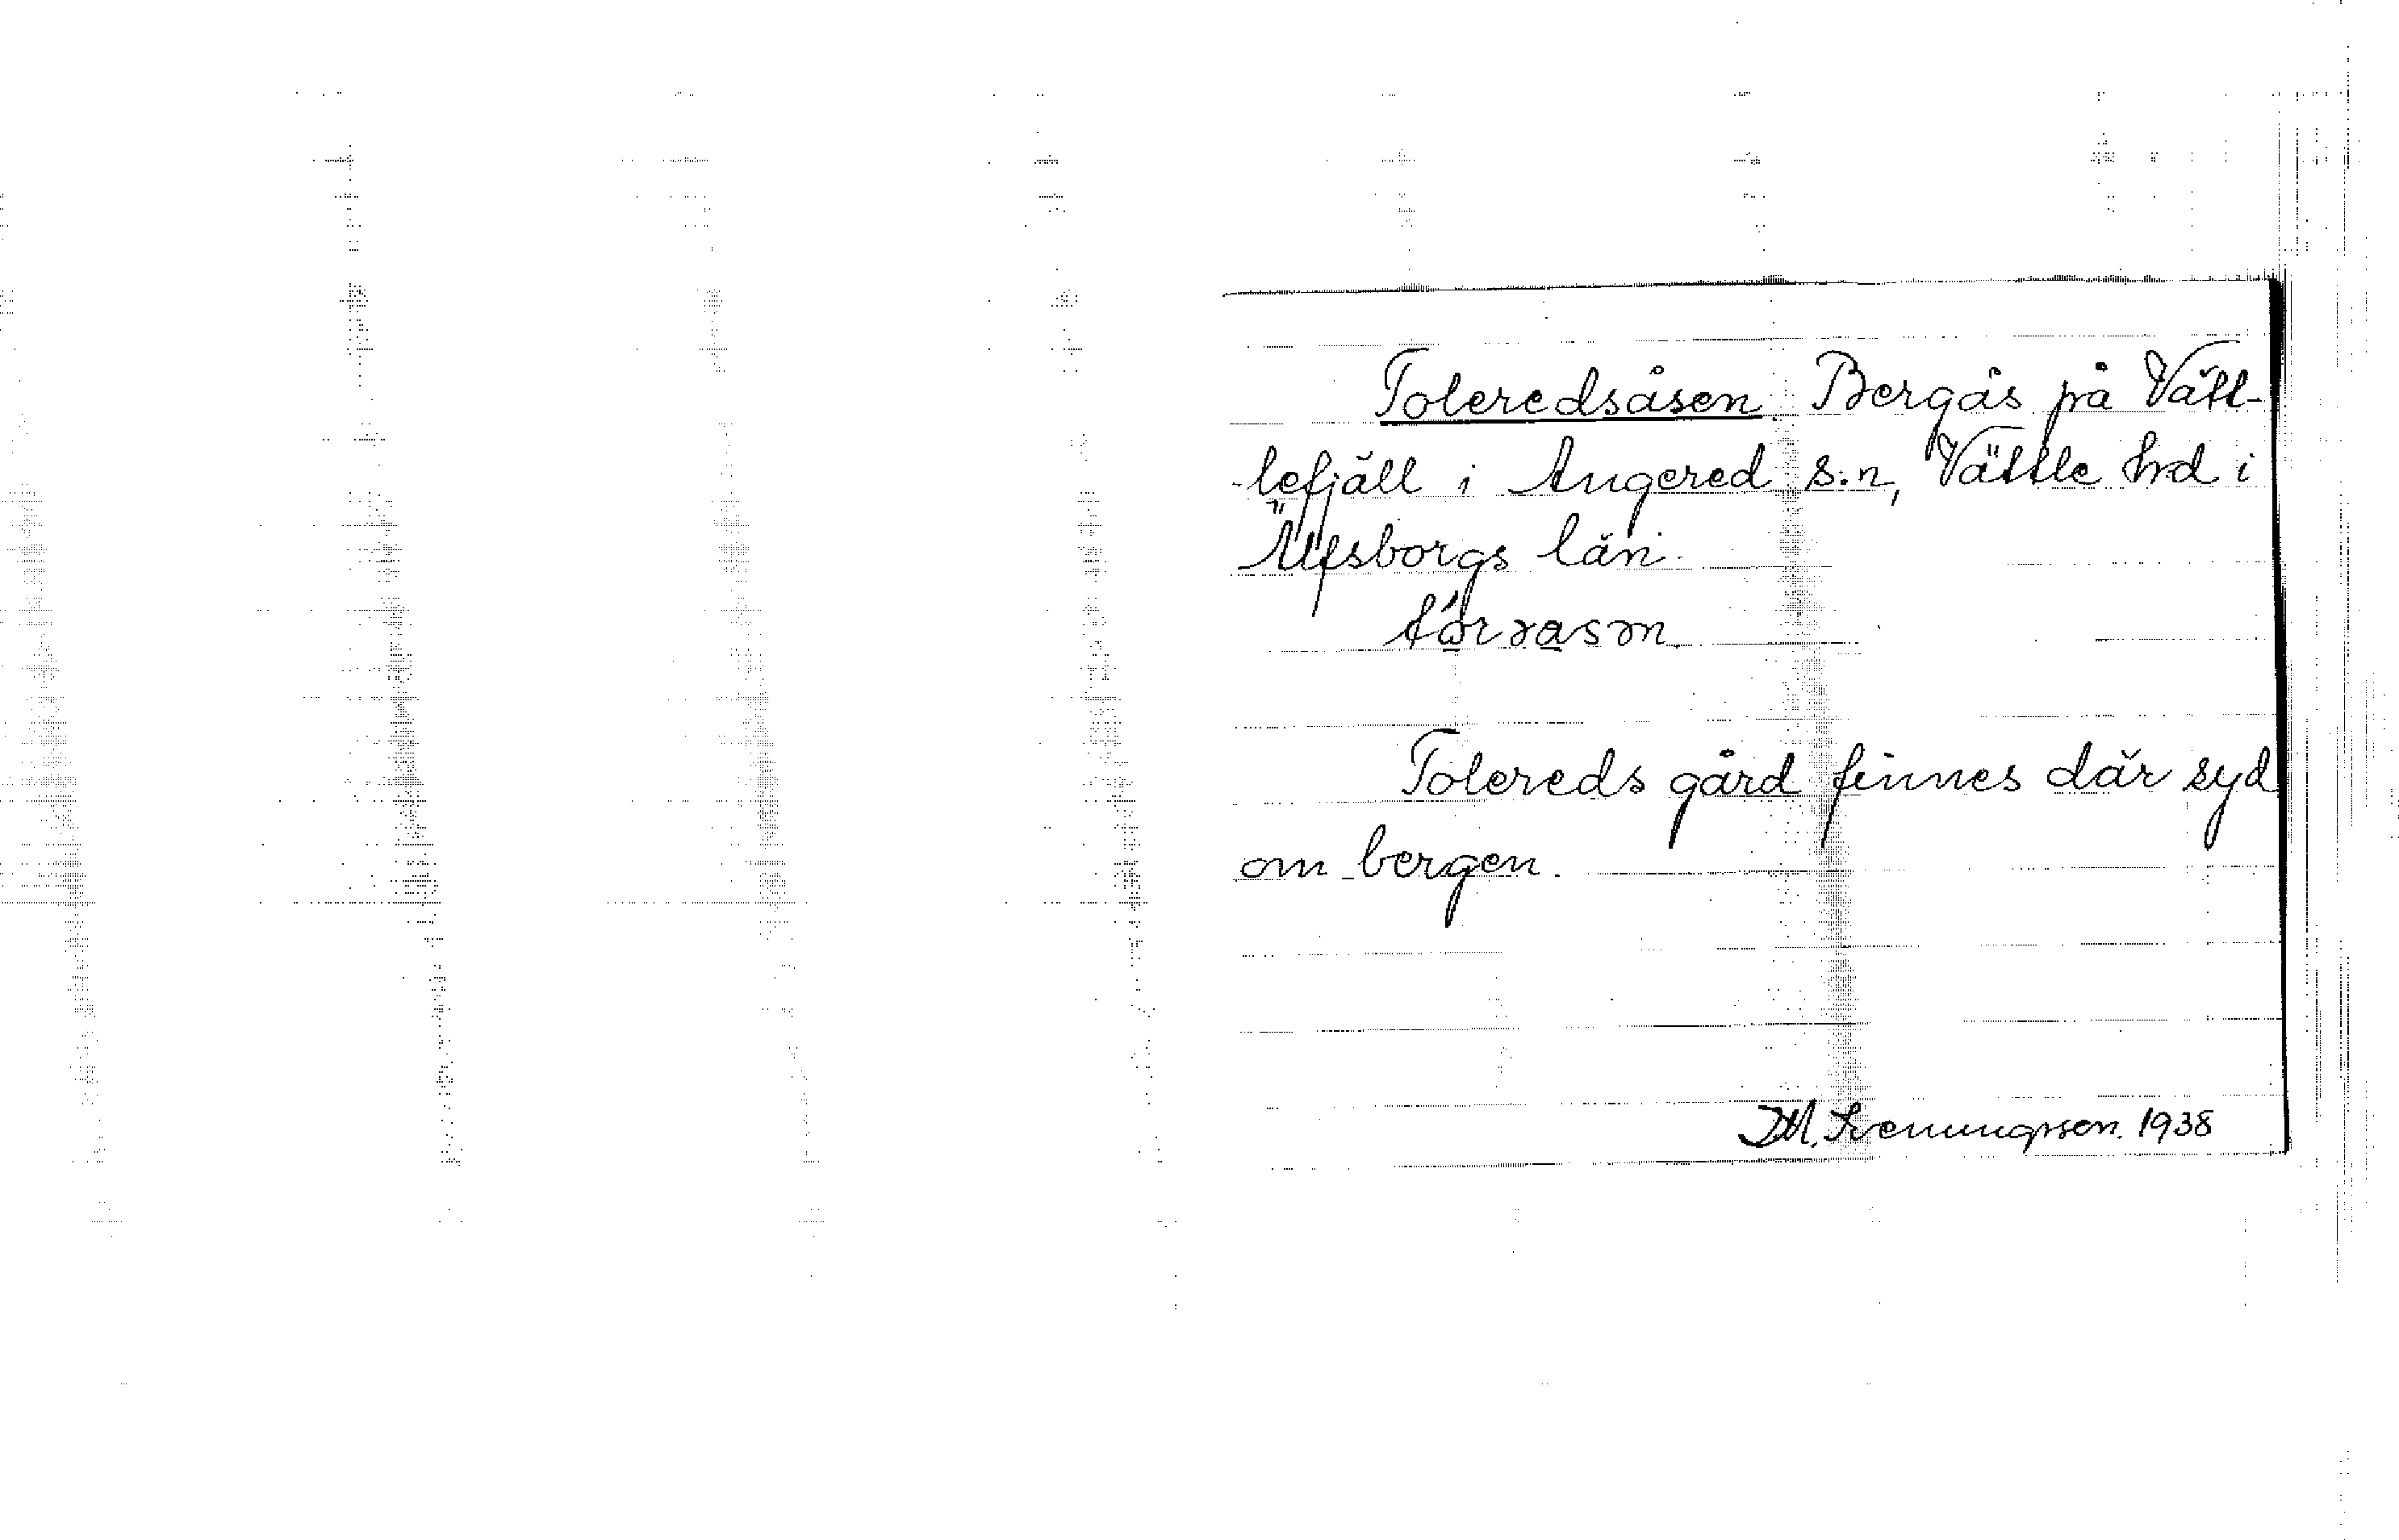 Toleredsåsen. Bergås på Vätt-
lefjäll i Angered s:n, Vättle hrd i
Älfsborgs län.
Tolereds gård finnes där syd
om bergen.
J.M. Svenungsson. 1938